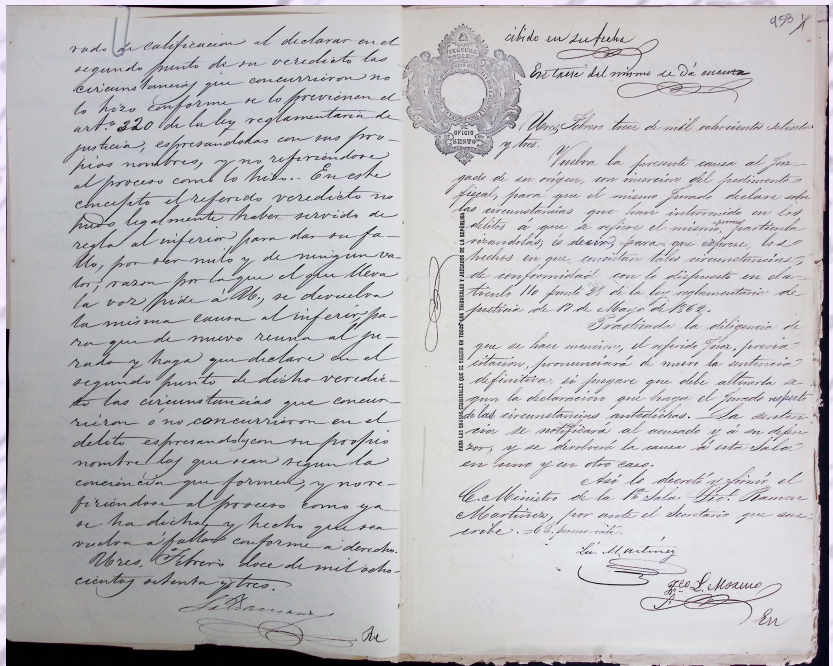 rado de calificacion al declarar en el
segundo punto de su veredicto las
circunstancias que concurrieron no
lo hizo conforme se lo previenen el
art.o 220 de la ley reglamentaria de
justicia, espresandolas con sus pro-
pios nombres, y no refiriéndose
al proceso como lo hizo.- En este
concepto el referido veredicto no
pudo legalmente haber servido de
regla al inferior para dar su fa-
llo, por ser nulo y de ningun va-
lor, razon por la que el que lleva
la voz pide á U., se devuelva
la misma causa al inferior, pa-
ra que de nuevo reuna al ju-
rado y haga que declare en el
segundo punto de dicho veredic-
to las circunstancias que concur-
rieron ó no concurrieron en el
delito espresando con su propio
nombre las que sean segun la
conciencia que formen, y no re-
firiéndose al proceso como ya
se ha dicho, y hecho que sea
vuelva á fallar conforme á derecho.
Ures, Febrero doce de mil ocho-
cientos setenta y tres.
950
cibido en su fecha
En trece del mismo se dá cuenta
OFICIO
SESTO
PARA LAS CAUSAS CRIMINALES QUE SE SIGUEN EN TODOS LOS TRIBUNALES Y JUZGADOS DE LA REPÚBLICA
Ures, Febrero trece de mil ochocientos setenta
y tres.
Vuelva la presente causa al Juz-
gado de su origen, con insercion del pedimento
fiscal, para que el mismo Jurado declare sobre
las circunstancias que han intervenido en los
delitos a que se refiere el mismo, particula
rizandolas, es decir, para que esprese, los
hechos en que consistan tales circunstancias,
de conformidad con lo dispuesto en el ar-
tículo 110 punto de la ley reglamentaria de
justicia de 17 de Mayo de 1862.
Practicada la diligencia de
que se hace mencion, el referido Juez, previa
citacion, pronunciará de nuevo la sentencia
definitiva, si juzgare que debe alterarla se-
gun la declaracion que haga el Jurado respecto
de las circunstancias antedichas. La senten-
cia se notificará al acusado y á su defen-
sor, y se devolverá la causa á esta Sala
en uno y en otro caso.
Así lo decretó y firmó el
C. Ministro de la 1a Sala Ramon
Martinez, por ante el Secretario que sus-
cribe.
Lic. Martinez
Fco. L. Moreno
En